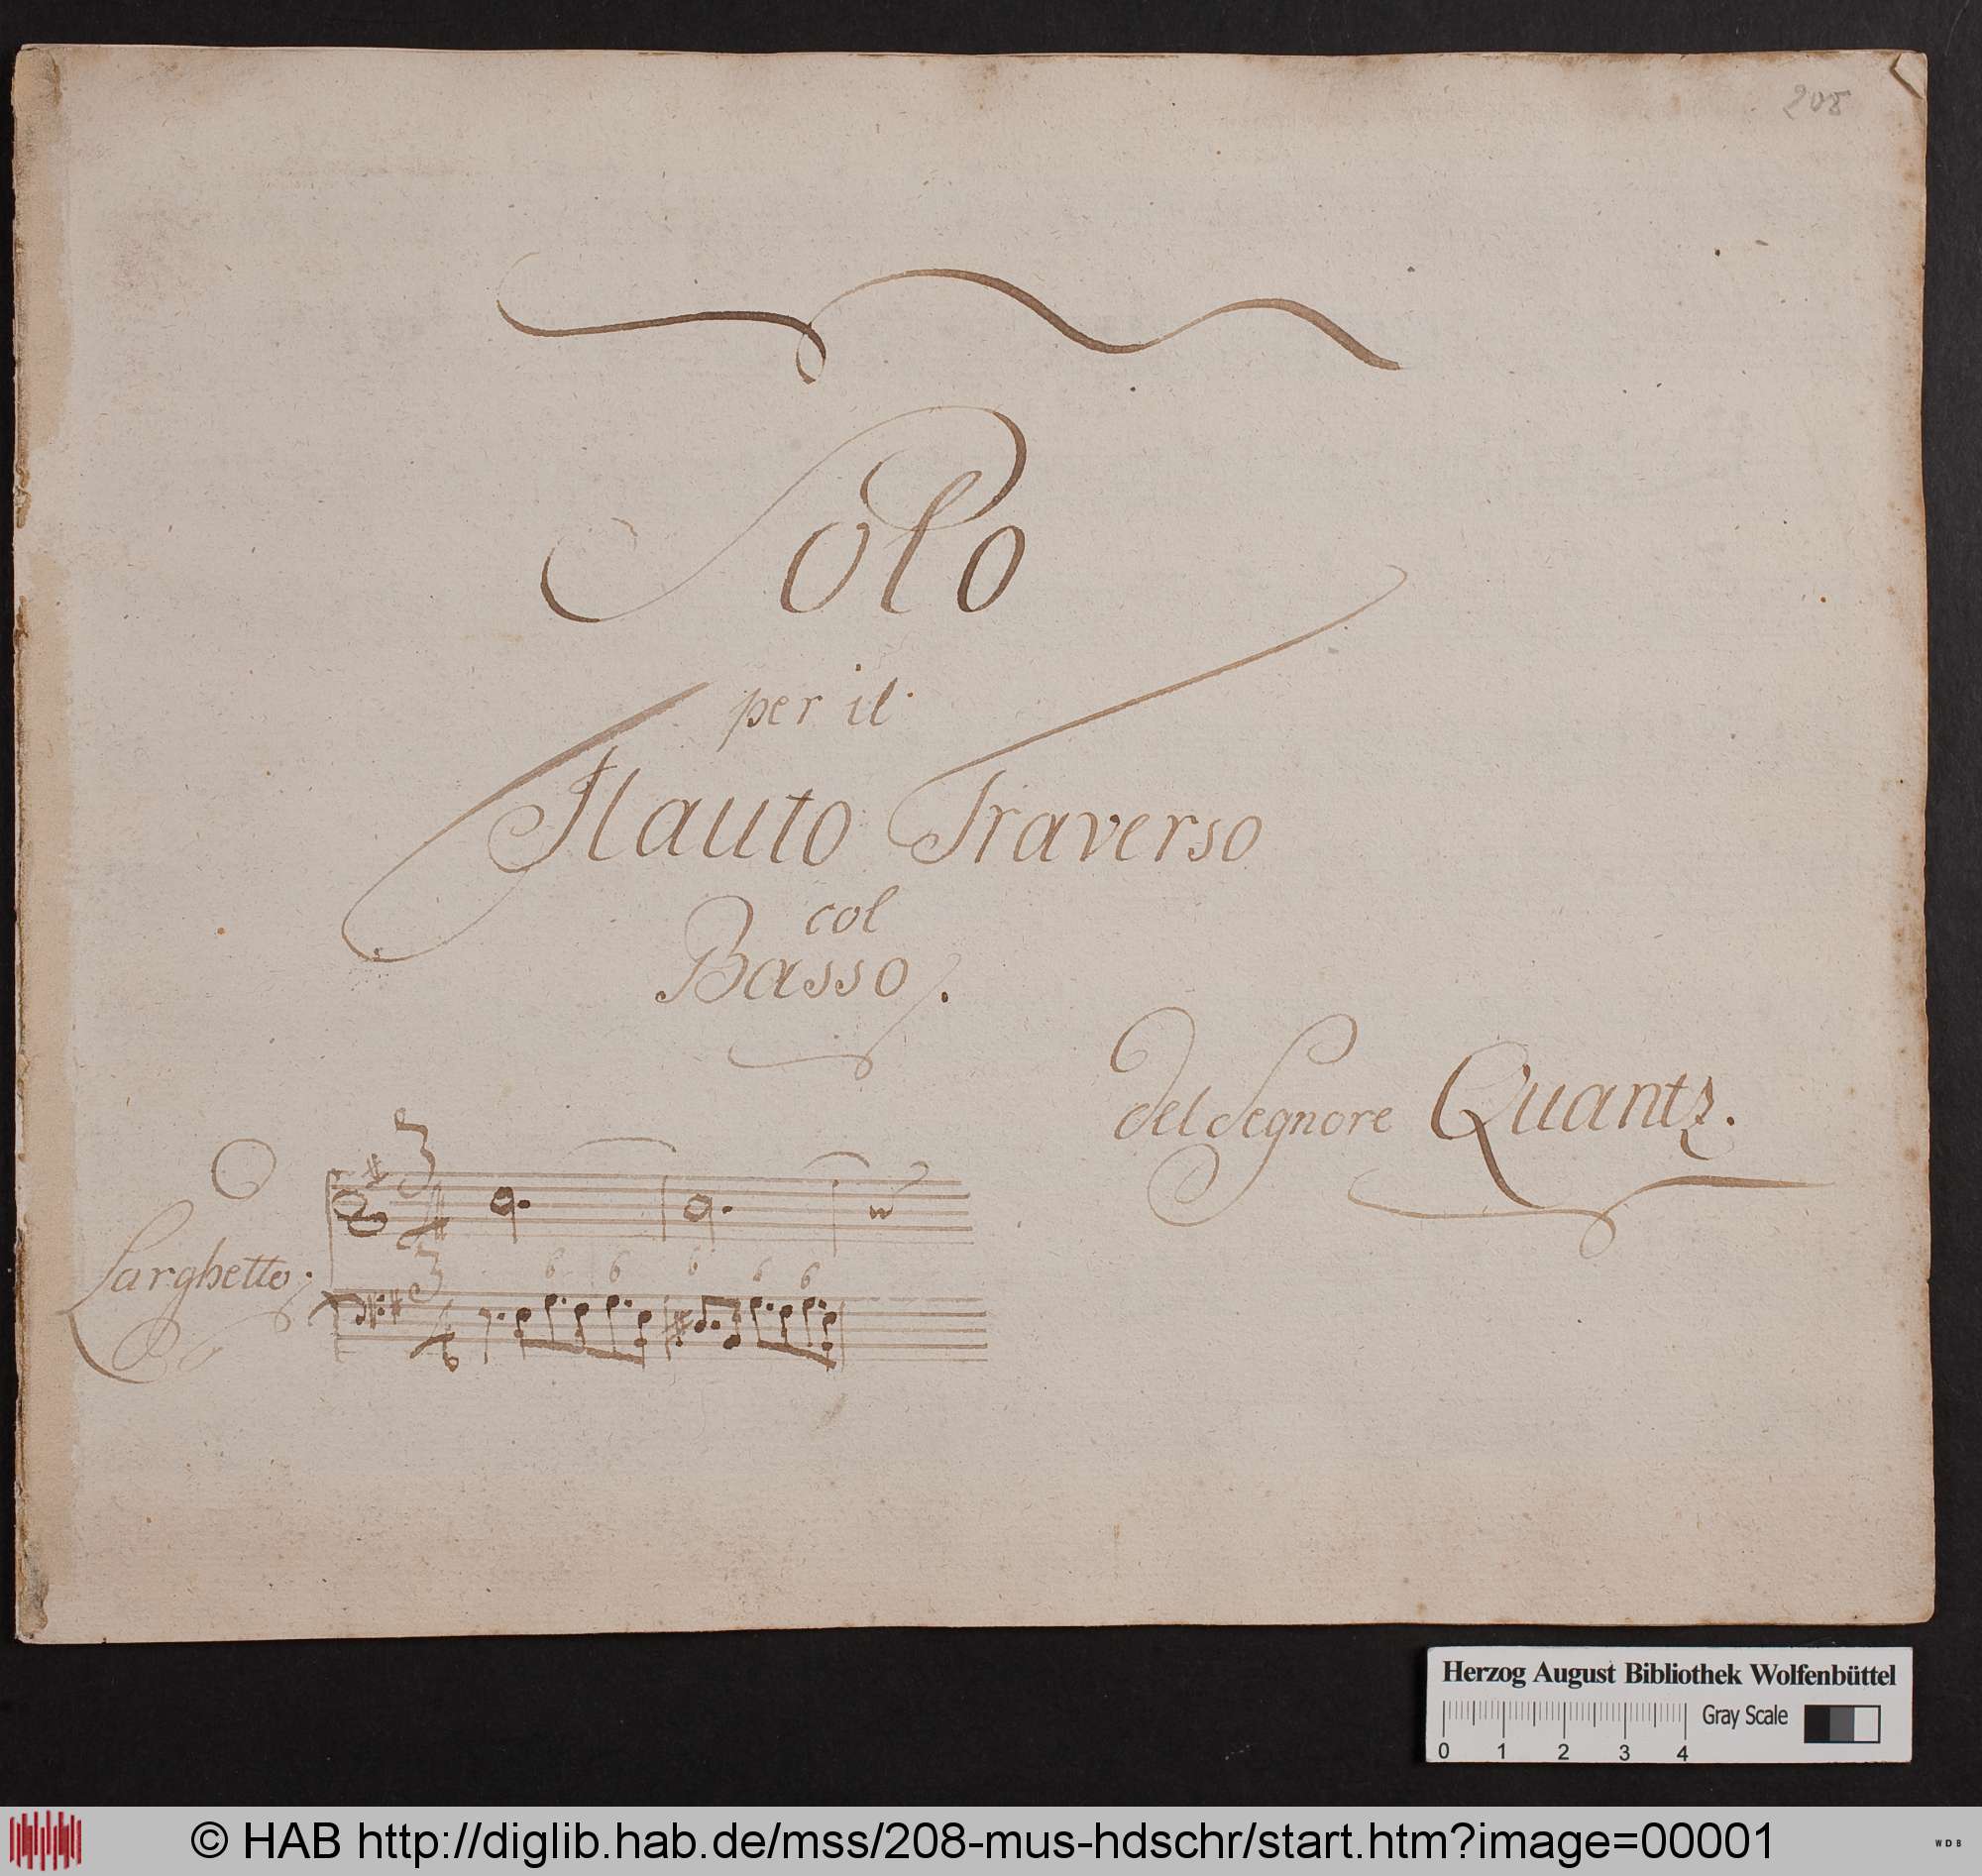 208
Solo
per il
Flauto Traverso
col
Basso.
del Segnore Quantz.
Larghetto.
3
3
6 6 6 6 6
Herzog August Bibliothek Wolfenbüttel
Gray Scale
0 1 2 3 4
© HAB http://diglib.hab.de/mss/208-mus-hdschr/start.htm?image=00001
WDB